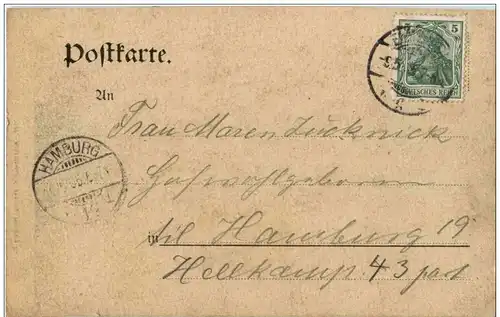 Postkarte.
5
DEUTSCHES REICH
An
Frau Maren Zucknick
HAMBURG
Hochwohlgeboren
in Hamburg 19
Hellkamp. 43 part